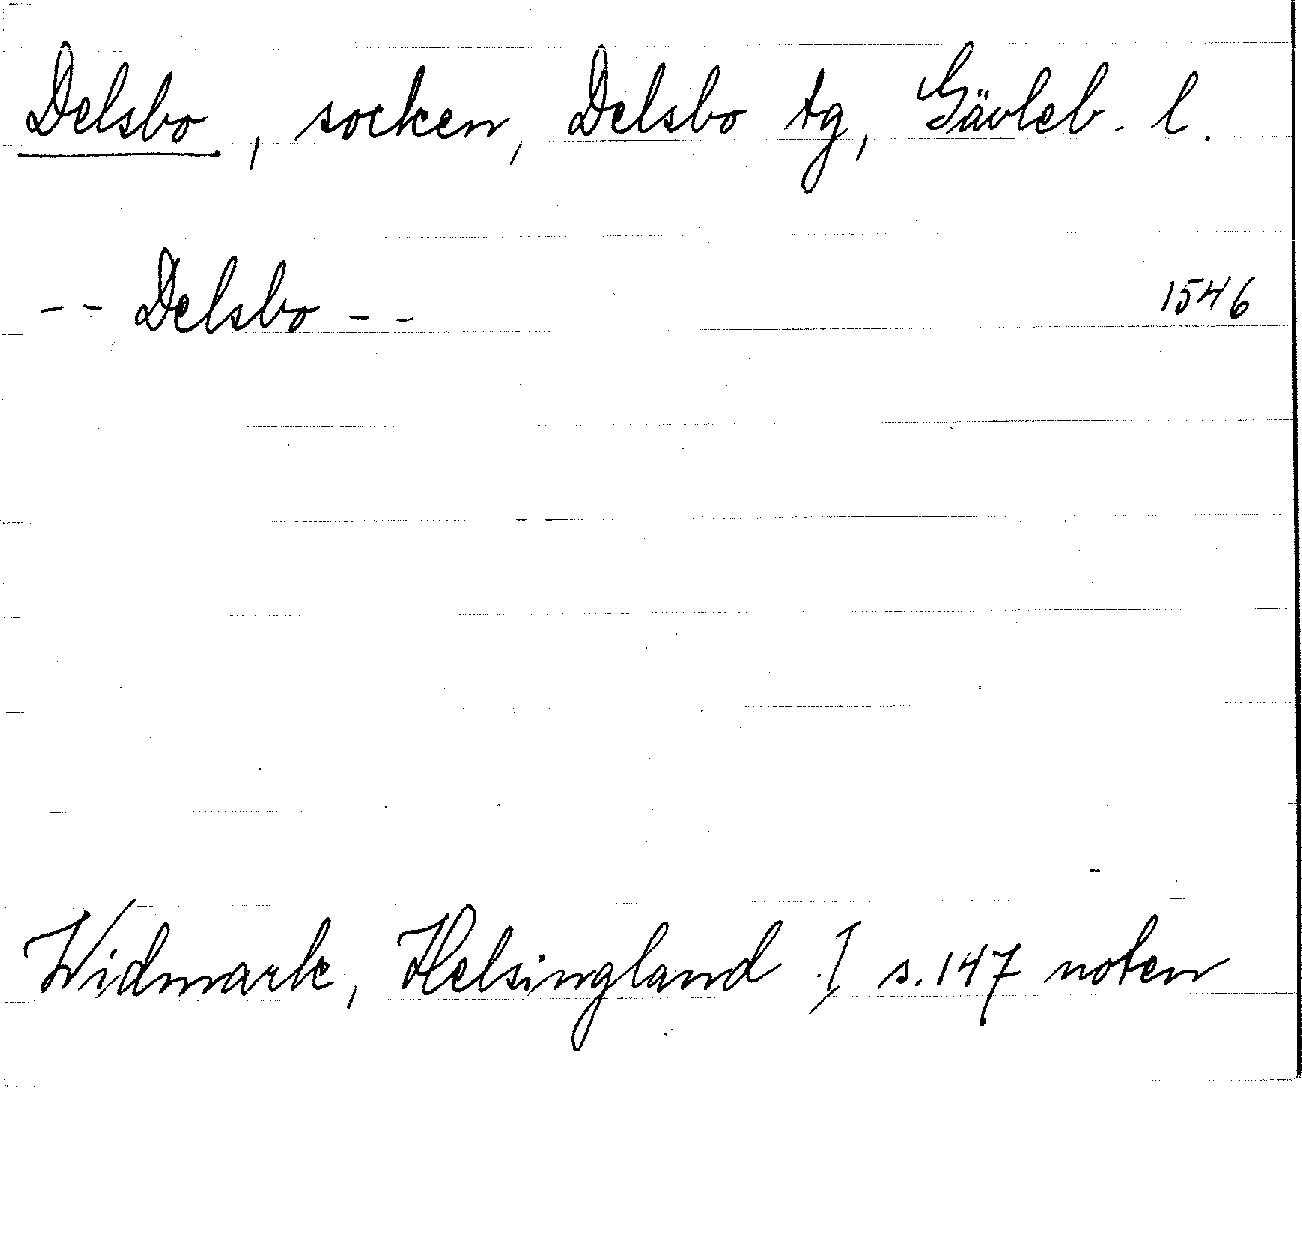 Delsbo, socken, Delsbo tg, Gävleb. l.
-- Delsbo -- 1546
Widmark, Helsingland I s. 147 noten